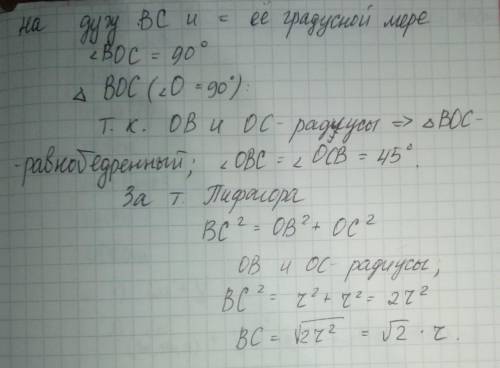 на дугу BC и = её градусной мере
∠BOC = 90°
△ BOC (∠O = 90°):
т. к. OB и OC - радиусы => △BOC-
-равнобедренный; ∠OBC = ∠OCB = 45°.
За т. Пифагора
BC² = OB² + OC²
OB и OC - радиусы;
BC² = r² + r² = 2r²
BC = √2r² = √2 · r.